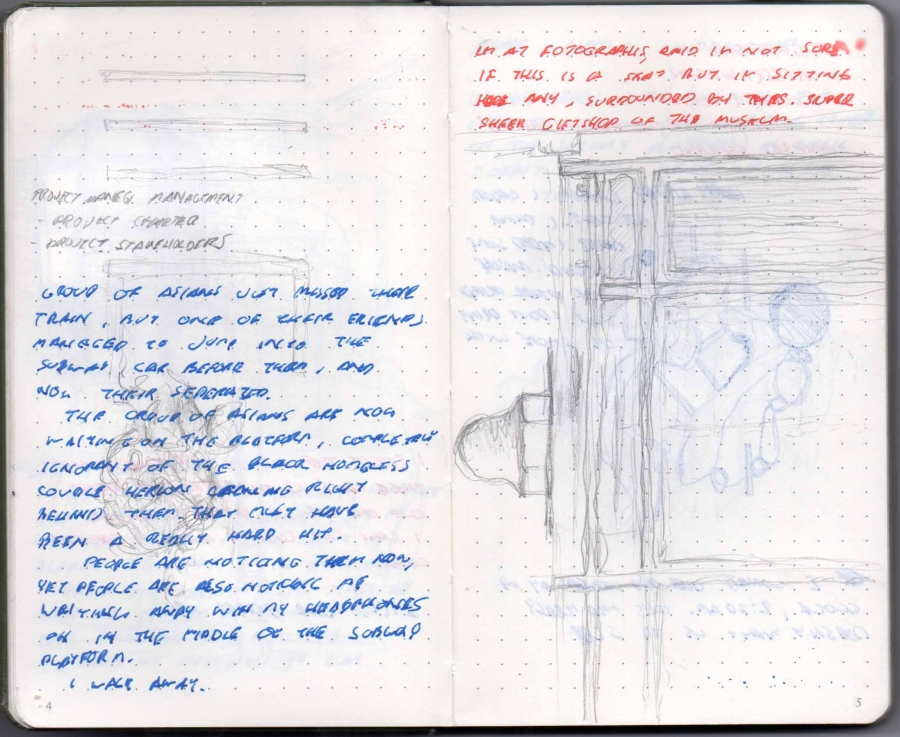 PROJECT MANEG. MANAGEMENT
- PROJECT CHARTER
- PROJECT STAKEHOLDERS
GROUP OF ASIANS JUST MISSED THEIR
TRAIN, BUT ONE OF THEIR FRIENDS
MANAGED TO JUMP INTO THE
SUBWAY CAR BEFORE THEM, AND
NOW THEIR SEPERATED.
THE GROUP OF ASIANS ARE NOW
WAITING ON THE PLATFORM, COMPLETELY
IGNORANT OF THE BLACK HOMELESS
COUPLE RIGHT
BEHIND THEM. THAT MUST HAVE
BEEN A REALLY HARD HIT.
PEOPLE ARE NOTICING THEM NOW,
YET PEOPLE ARE ALSO NOTICING ME
WRITING AWAY WITH MY HEADPHONES
ON IN THE MIDDLE OF THE SUBWAY
PLATFORM.
I WALK AWAY.
4
IM AT FOTOGRAFIS, AND IM NOT SURE
IF THIS IS A SEAT BUT IM SITTING
ANY, SURROUNDED BY THIS SUPER
SHEER GIFTSHOP OF THE MUSEUM.
5